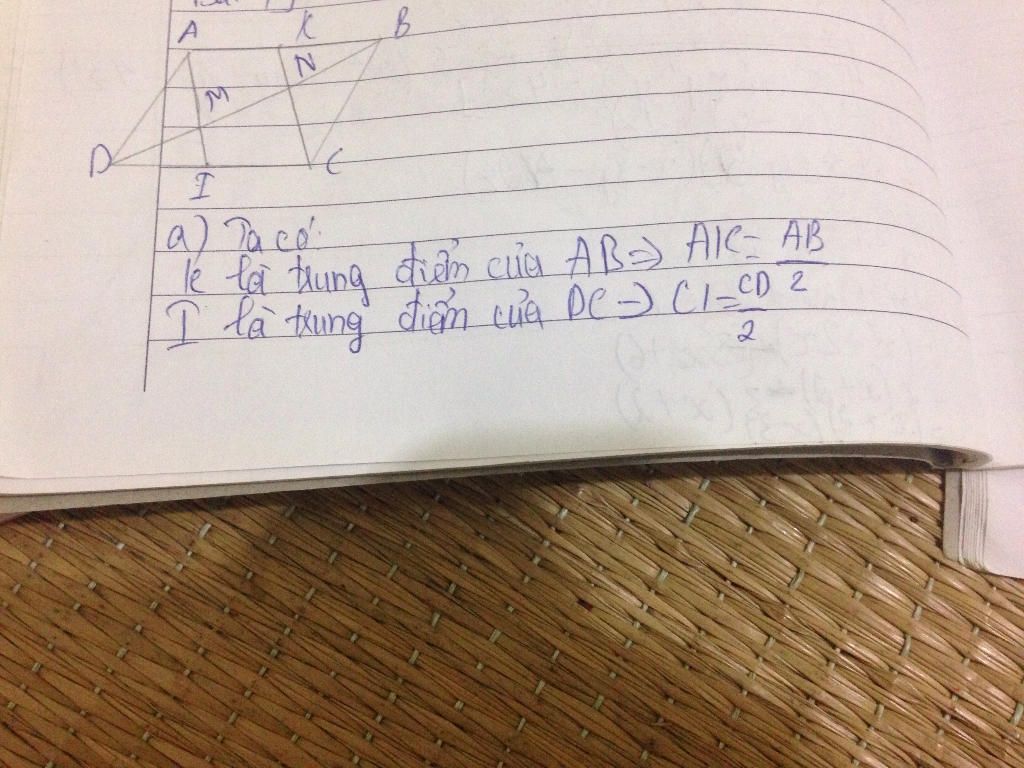 A K B
N
M
D I C
a) Ta có:
K là trung điểm của AB => AK = AB/2
I là trung điểm của DC => CI = CD/2